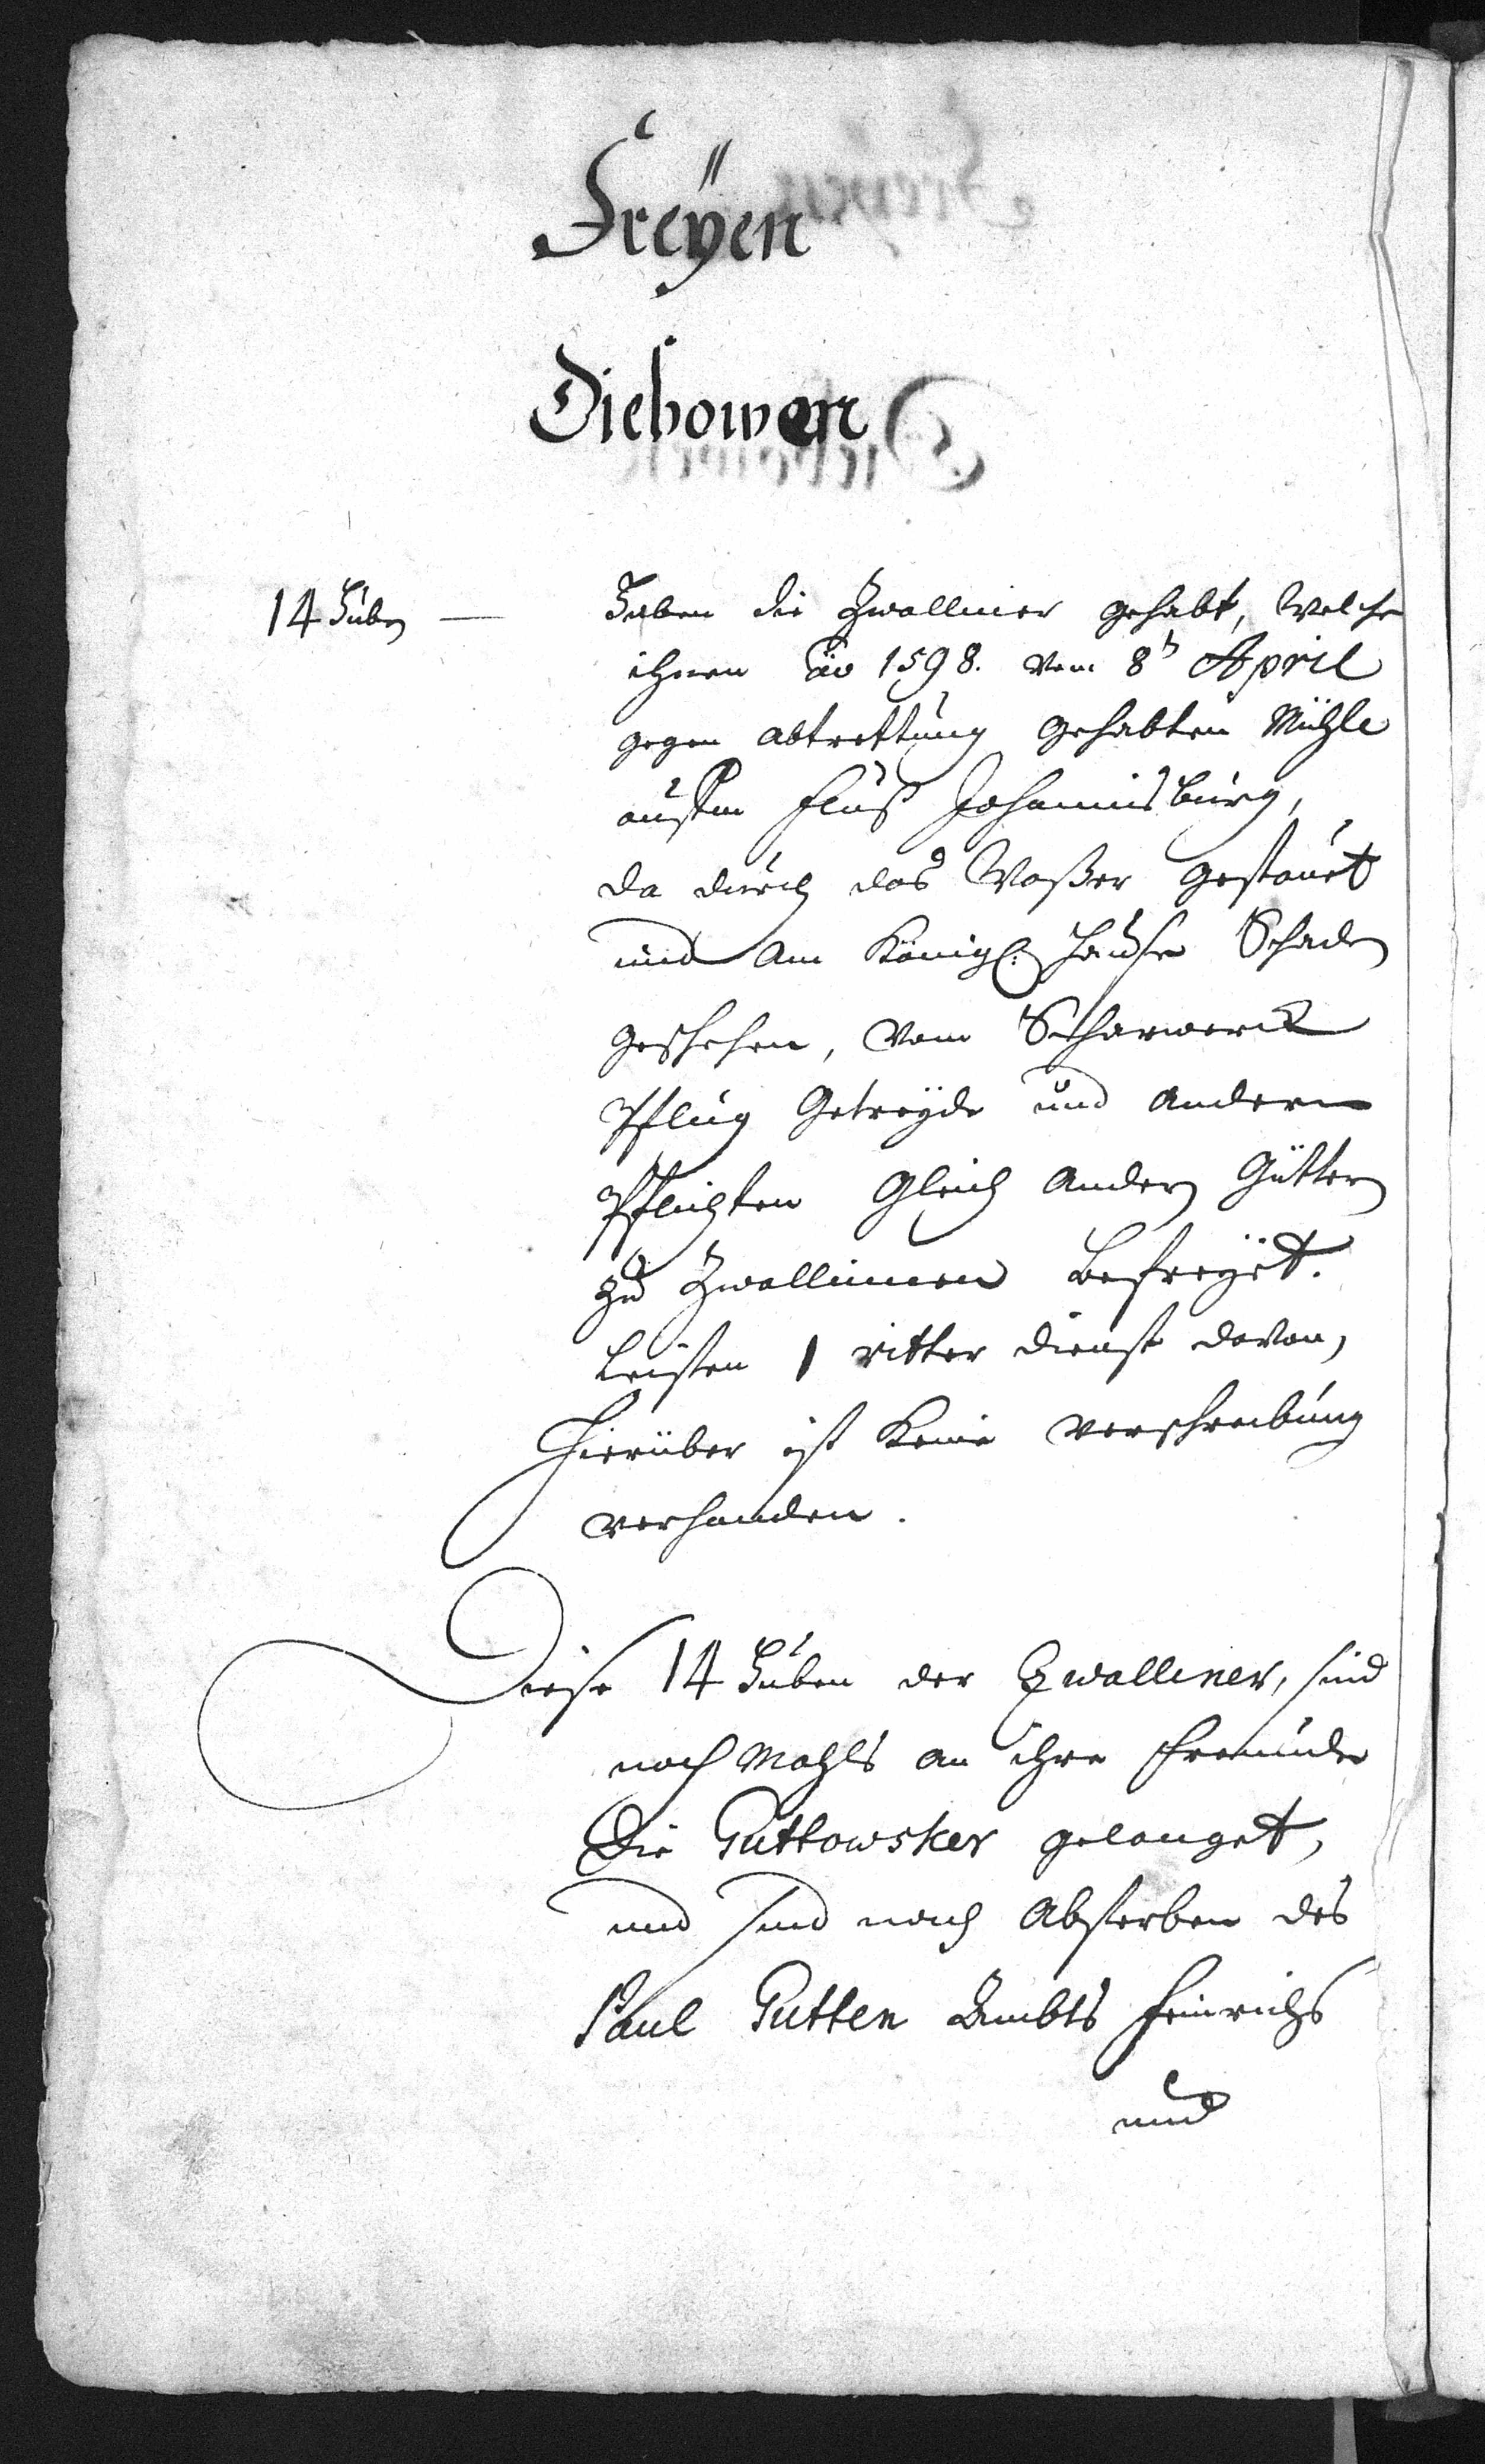 Freÿen
Diebowen
14 Huben — Haben die Zwalliner gehabt, Welche
ihnen ao 1598. Vom 8t April
gegen abtrettung gehabten Mühle
aufm fluß Johannisburg,
da durch das Waßer gestauet
und am Königl: Hause Schaden
geschehen, Vom Scharwerck
Pflug Getreÿde und andern
Pflichten Gleich andern Gütter
zu Zwallinnen befreÿet.
Leisten 1 ritter dienst davon,
Hierüber ist Keine verschreibung
verhanden.
Diese 14 Huben der Zwalliner, sind
nach Mahls an ihre Freunde
Die Guttowsker gelanget,
und sind nach Absterben des
Paul Gutten Ambts Heinrichs
und